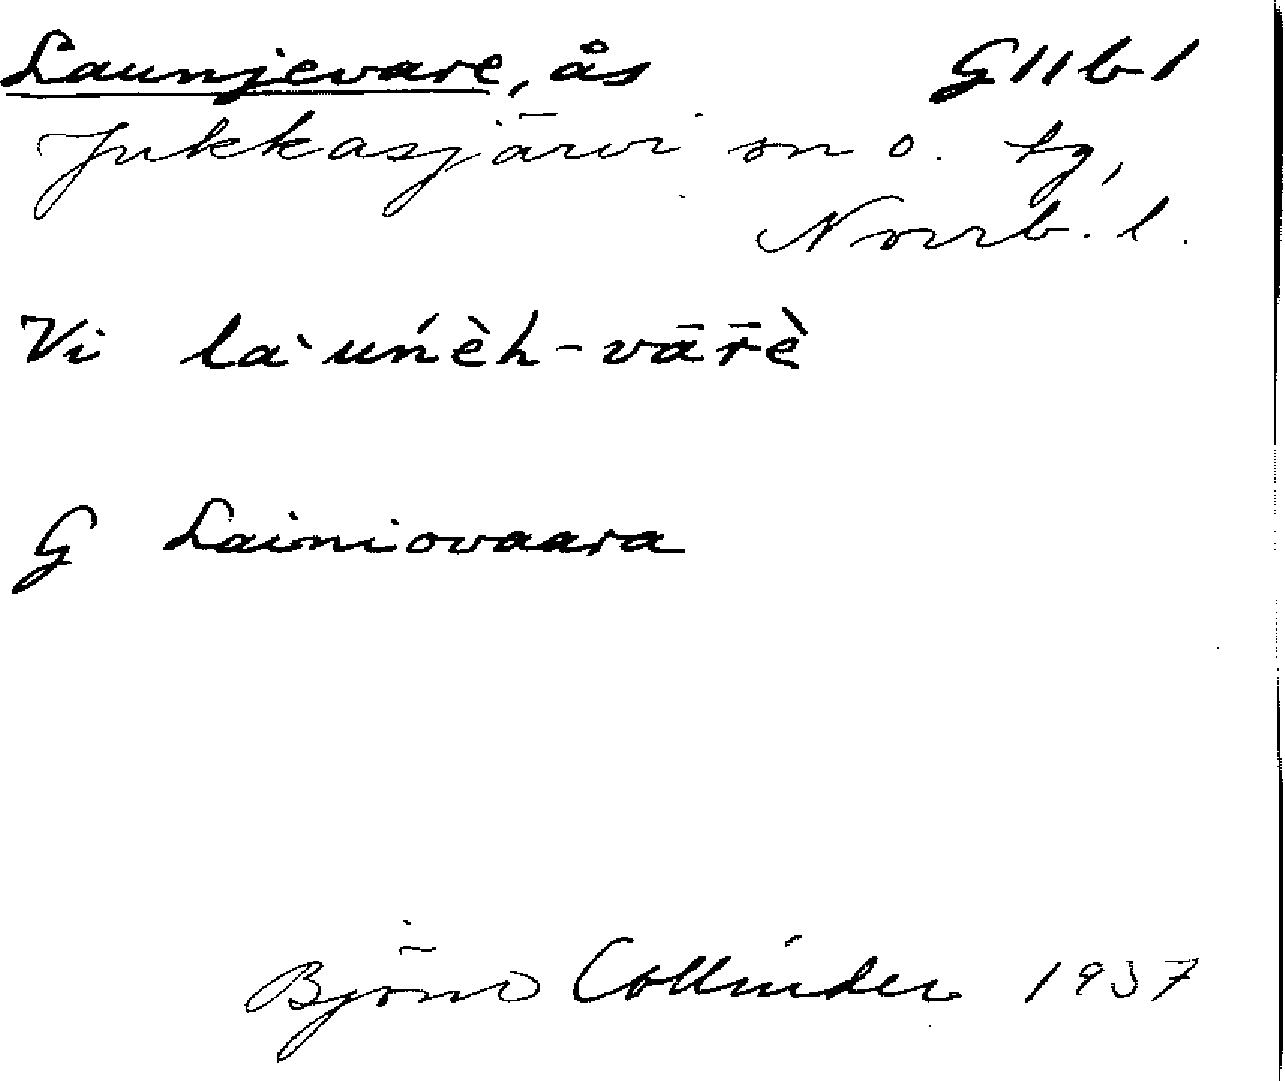 Launjevare, ås G11b1
Jukkasjärvi sn o. tg,
Norrb. l.
Vi la`uńèh-vār̄è
G Lainiovaara
Björn Collinder 1937